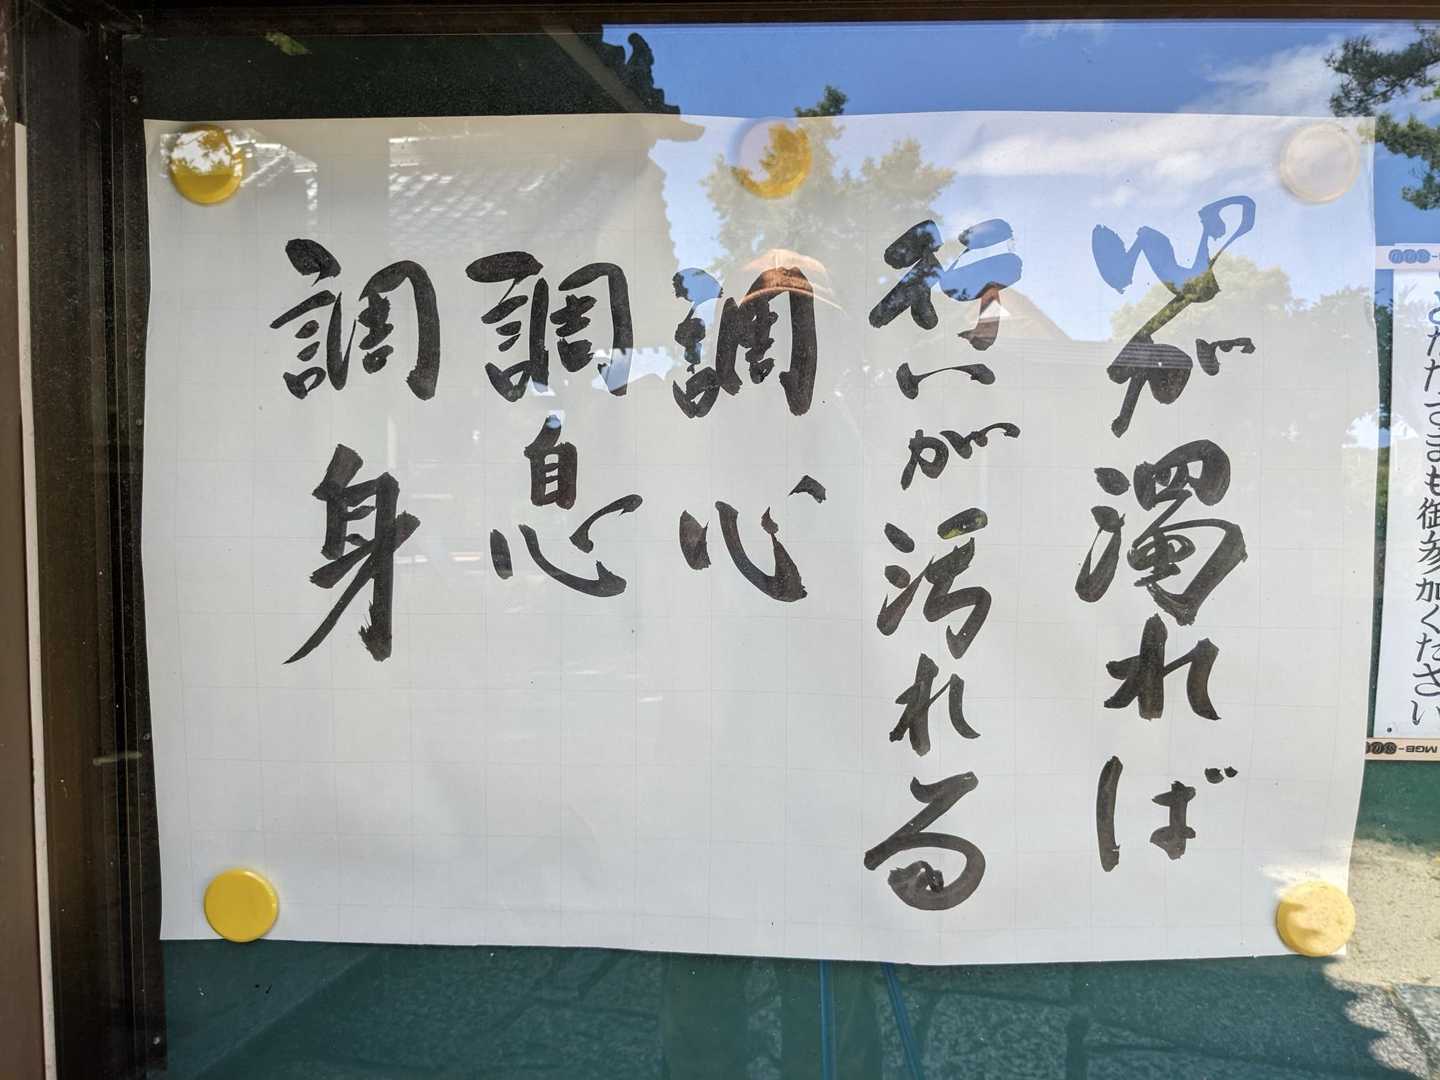 心が濁れば
行いが汚れる
調心
調息
調身
どなたさまも御参加ください